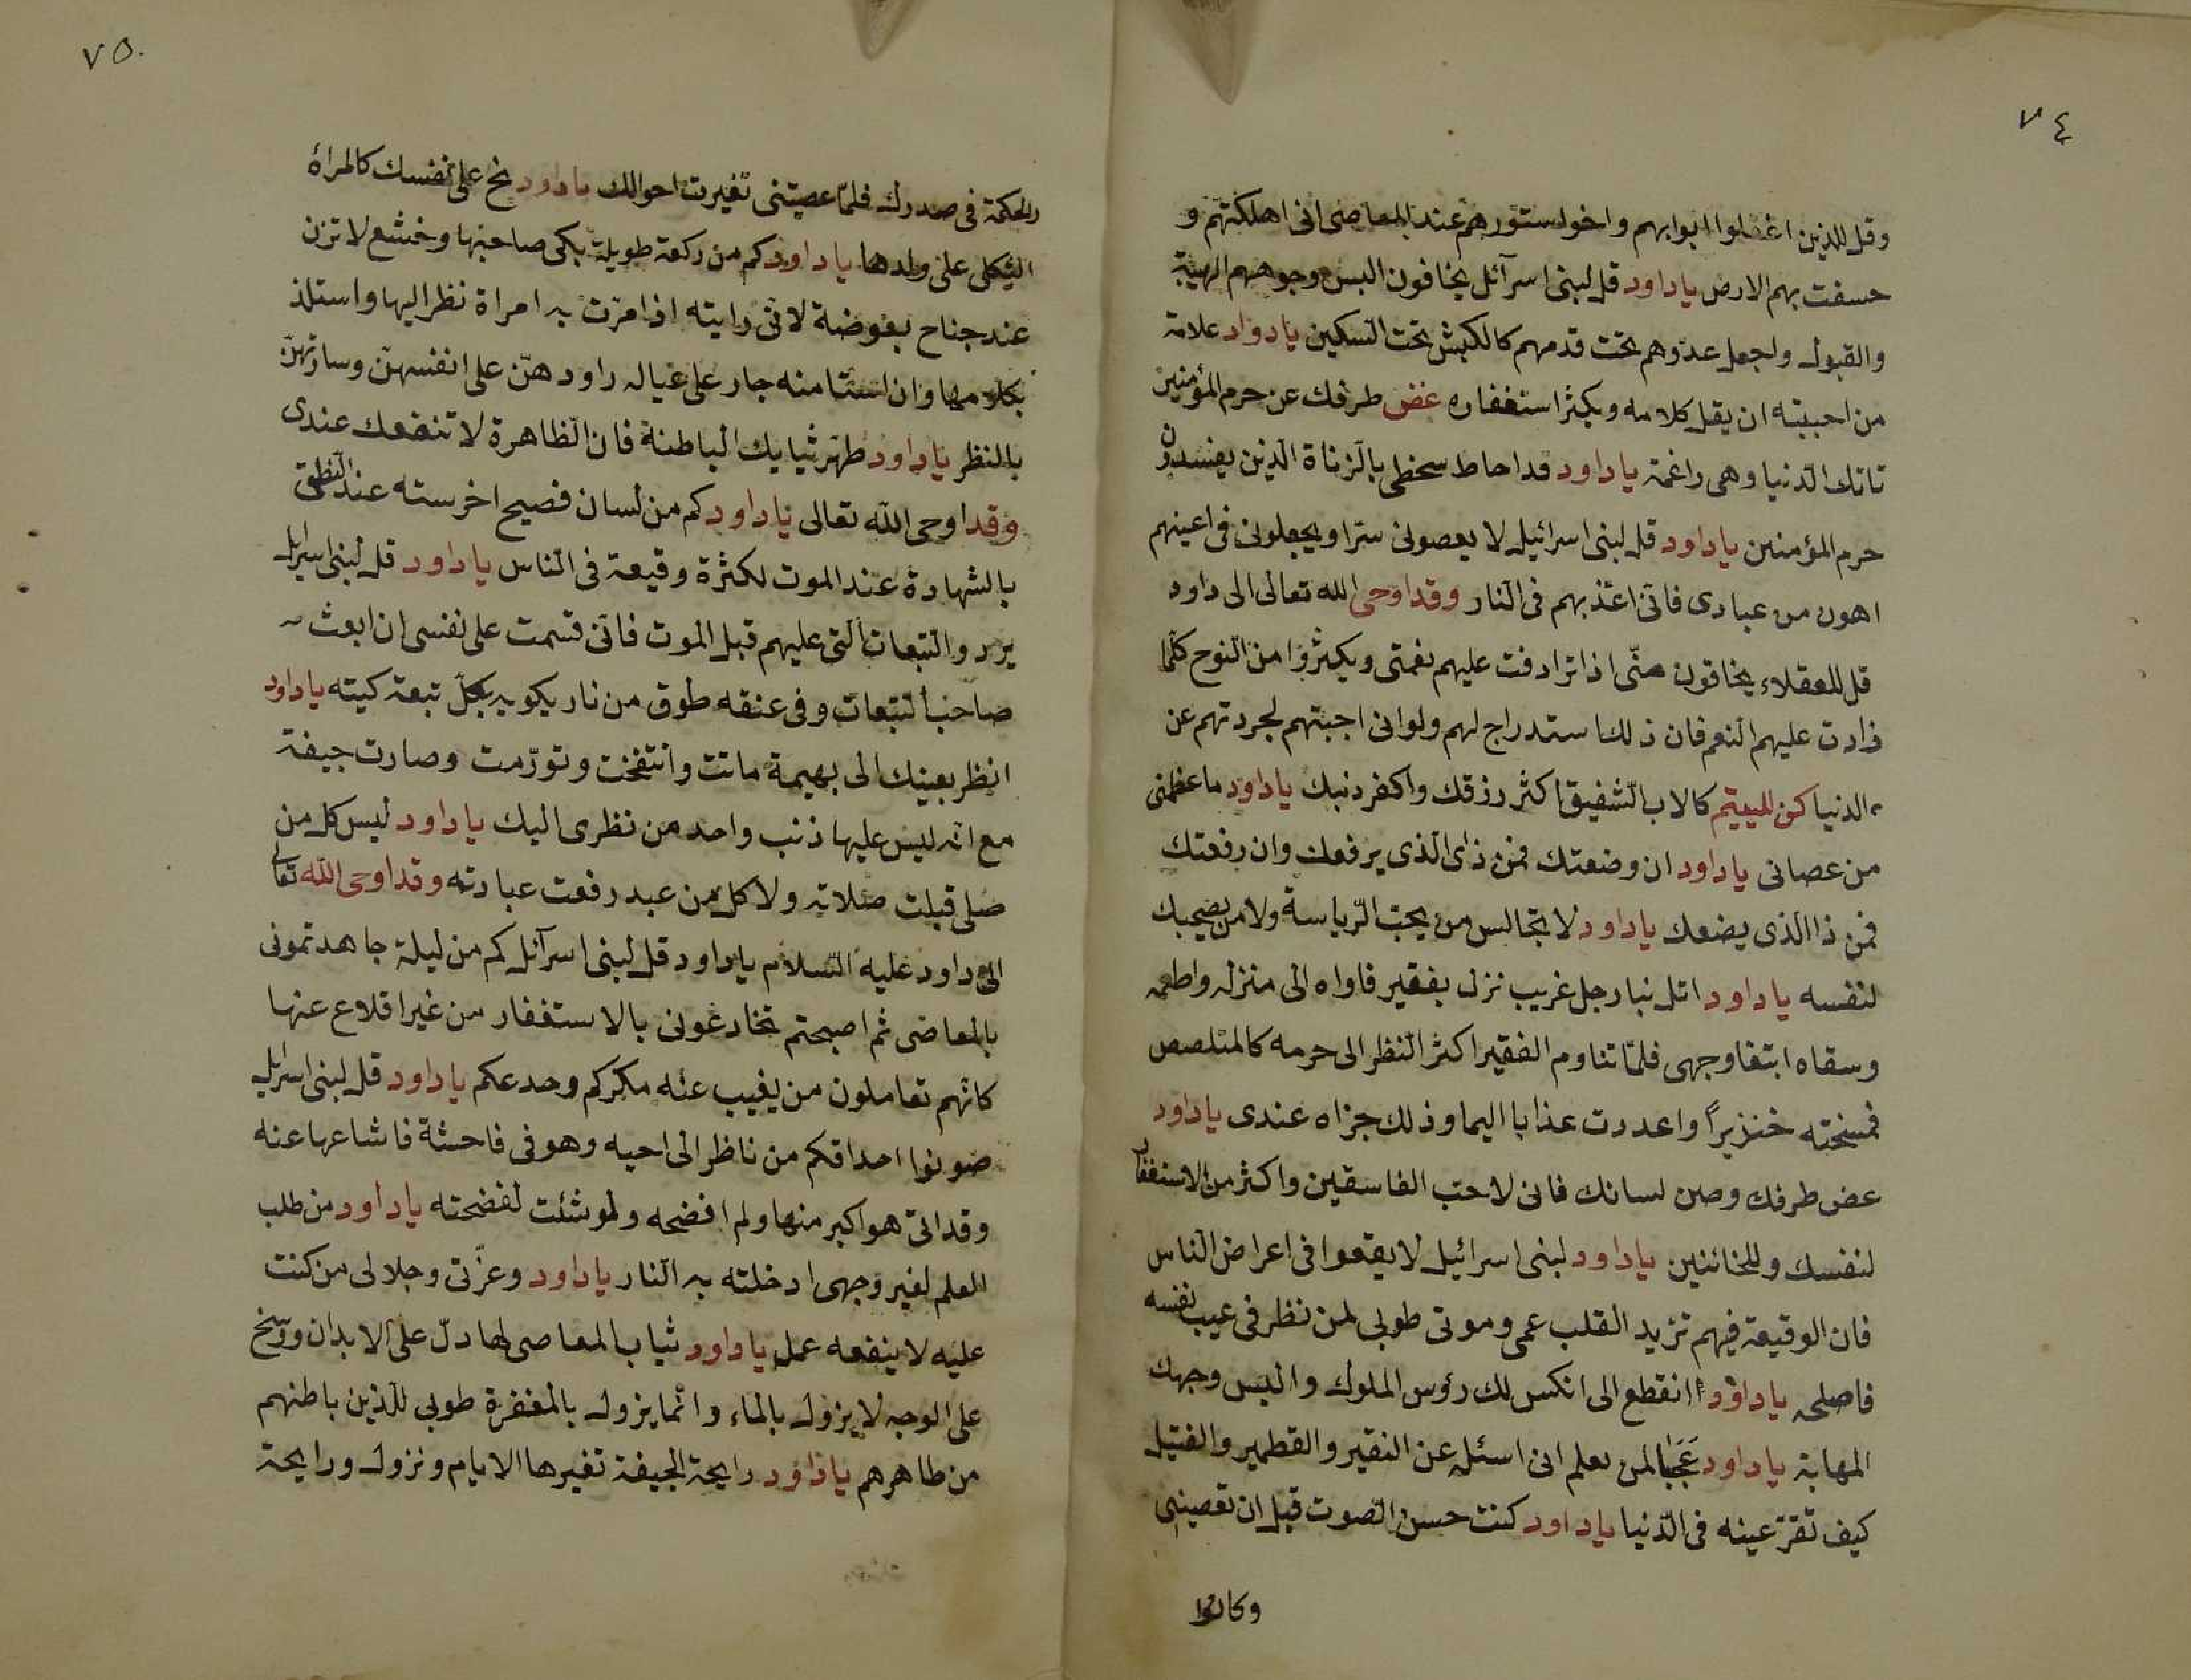 ٧٤
وقل للذين اغفلوا ابوابهم واخوا ستورهم عند المعاصى انى اهلكتهم و
حسفت بهم الارض ياداود قل لبنى اسرآئل يخافون البس وجوههم الهيبة
والقبول واجعل عدّوهم تحت قدمهم كالكبش تحت السكين يادواد علامة
من احببته ان يقل كلامه ويكثر استغفاره غض طرفك عن حرم المؤمنين
تاتك الدّنيا وهى راغمة ياداود قداحاط سخطى بالزناة الذين يفسدون
حرم المؤمنين ياداود قل لبنى اسرائيل لا يعصونى سترا ويجعلونى فى اعينهم
اهون من عبادى فانّى اعذبهم فى النار وقداوحى الله تعالى الى داود
قل للعقلاء يخافون منّى اذا ترادفت عليهم نعمتى ويكثروا من النوح كلّما
زادت عليهم النعم فان ذلك استدراج لهم ولوانى اجبتهم لجردتهم عن
الدنيا كن لليتيم كالاب الشفيق اكثر رزقك واكفر ذنبك ياداود ماعظمنى
من عصانى ياداود ان وضعتك فمن ذاى الّذى يرفعك وان رفعتك
فمن ذا الذى يضعك ياداود لا تجالس من يحبّ الرّياسة ولا من يصحبك
لنفسه ياداود اتل نبا رجل غريب نزل بفقير فاواه الى منزله واطعمه
وسقاه ابتغا وجهى فلمّا تناوم الفقير اكثر النظر الى حرمه كالمتلصص
فمسخته خنزيراً واعددت عذابا اليما وذلك جزاه عندى ياداود
عض طرفك وصن لسانك فانى لا احب الفاسقين واكثر من الاستغفار
لنفسك وللخائنين ياداود لبنى اسرائيل لا يقعوا فى اعراض الناس
فان الوقيعة فيهم تزيد القلب عمى وموتى طوبى لمن نظر فى عيب نفسه
فاصلحه ياداود انقطع الى انكس لك رؤس الملوك والبس وجهك
المهابة ياداود عَجَبا لمن يعلم انى اسئله عن النقير والقطمير والفتيل
كيف تقرّ عينه فى الدّنيا ياداود كنت حسن الصّوت قبل ان تعصينى
وكانوا
٧٥
والحكمة فى صدرك فلمّا عصيتنى تغيرت احوالك ياداود نح على نفسك كالمراة
الثكلى على ولدها ياداود كم من ركعة طويلة بكى صاحبها وخشع لا تزن
عند جناح بعوضة لانى رايته اذا مرّت به امراة نظر اليها واستلذ
بكلامها وان استامنه جار على عياله راودهنّ على انفسهنّ وسارقهنّ
بالنظر ياداود طهّر ثيابك الباطنة فان الظاهرة لا تنفعك عندى
وقداوحى الله تعالى ياداود كم من لسان فصيح اخرسته عند النطق
بالشهادة عند الموت لكثرة وقيعة فى الناس ياداود قل لبنى اسرايل
يردوا التبعات التى عليهم قبل الموت فانّى قسمت على نفسى ان ابعث
صاحب التبعات وفى عنقه طوق من نار يكويه بكلّ تبعة كيته ياداود
انظر بعينك الى بهيمة ماتت وانتفخت وتورّمت وصارت جيفة
مع انّه ليس عليها ذنب واحد من نظرى اليك ياداود ليس كل من
صلى قبلت صلاته ولا كل من عبد رفعت عبادته وقداوحى الله تعالى
الى داود عليه السلام ياداود قل لبنى اسرآئل كم من ليلة جاهدتمونى
بالمعاصى ثم اصبحتم تخادعونى بالاستغفار من غير اقلاع عنها
كانّهم تعاملون من يغيب عنه مكركم وخدعكم ياداود قل لبنى اسرايل
صونوا احداقكم من ناظر الى اخيه وهو فى فاحشة فاشاعها عنه
وقد اتى هو اكبر منها ولم افضحه ولو شئت لفضحته ياداود من طلب
العلم لغير وجهى ادخلته به النار ياداود وعزّتى وجلالى من كنت
عليه لا ينفعه عمل ياداود ثياب المعاصى لها دلّ على الابدان ووسخ
على الوجه لا يزول بالماء وانّما يزول بالمغفرة طوبى للذين باطنهم
من طاهرهم ياداود رايحة الجيفة تغيرها الايام ونزول ورايحة